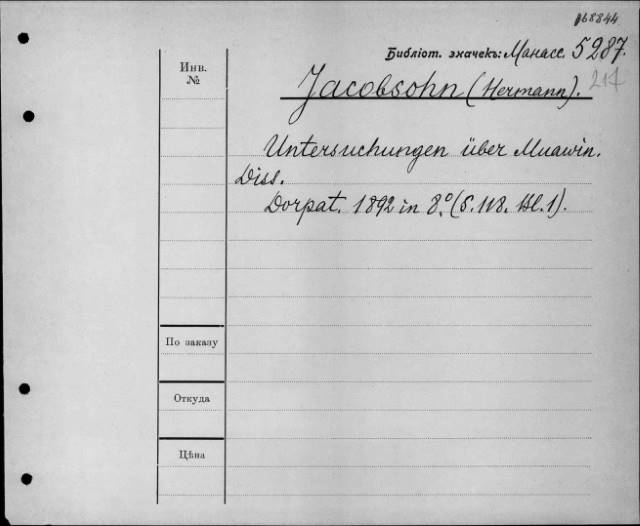 168844
Библіот. значекъ: Манасс. 5287.
217
Инв.
№
Jacobsohn (Hermann).
Untersuchungen über Muawin.
Diss.
Dorpat. 1892 in 8.° (S. 118. Bl. 1).
По заказу
Откуда
Цѣна